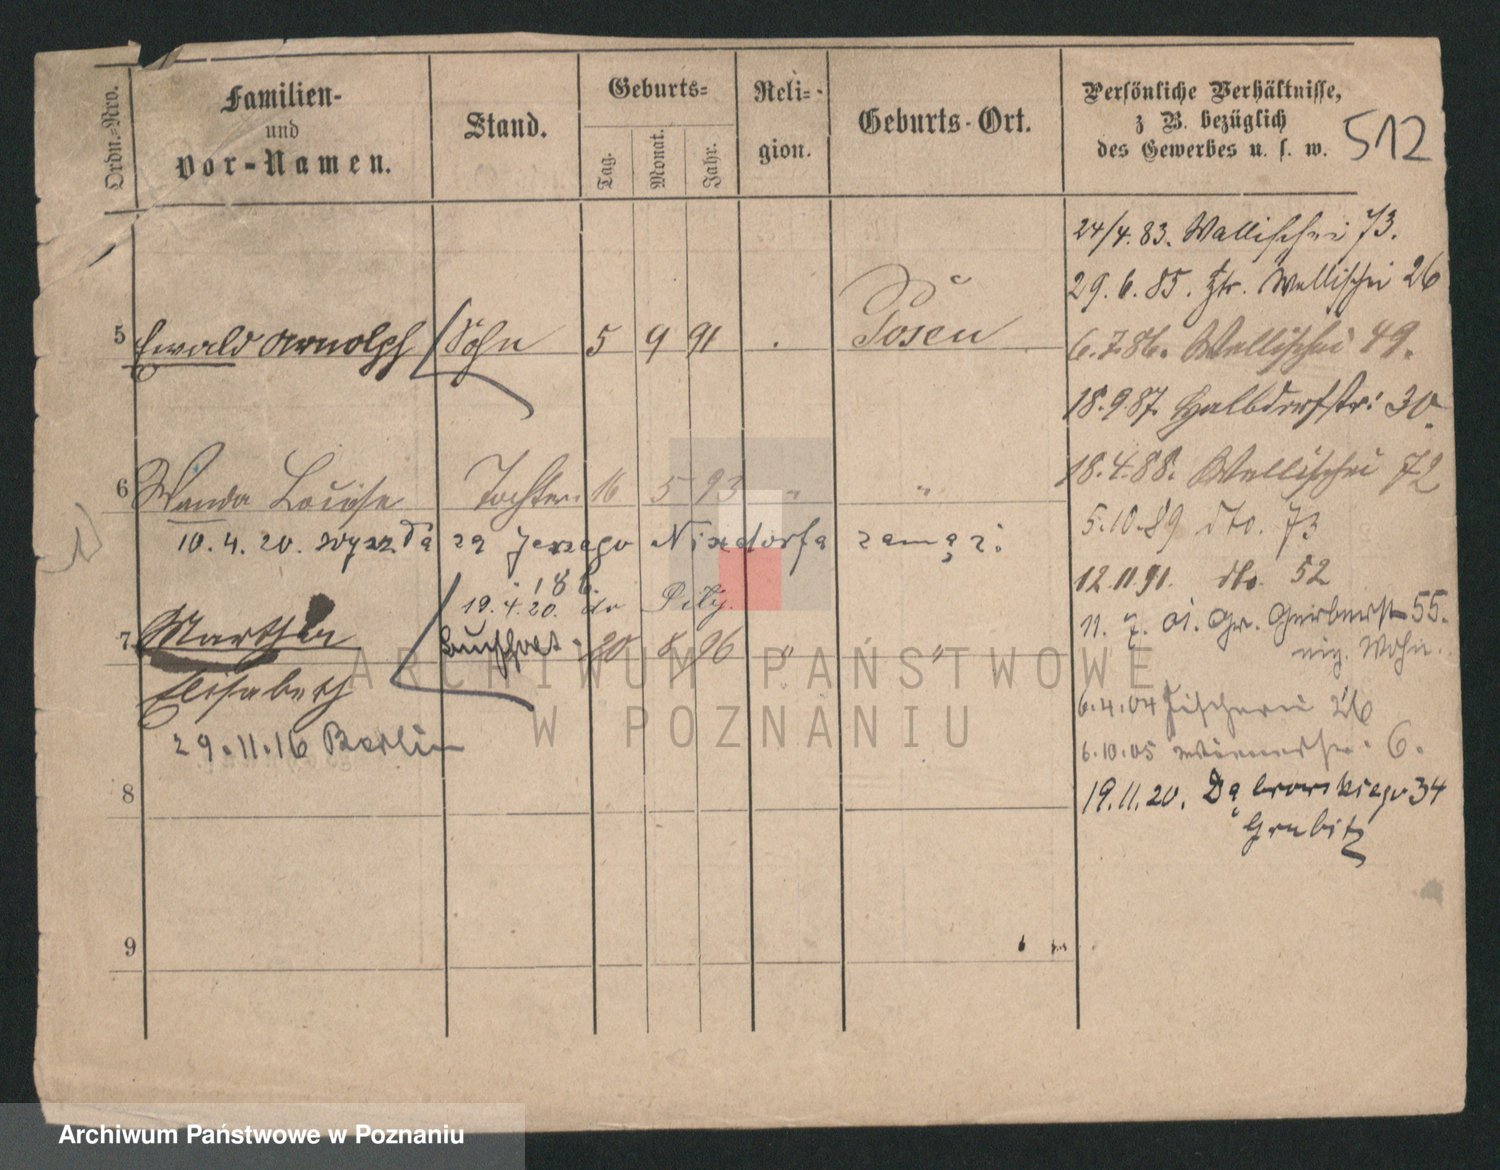 Ordn.-Nro.
Familien-
und
Vor-Namen.
Stand.
Geburts-
Tag.
Monat.
Jahr.
Reli-
gion.
Geburts-Ort.
Persönliche Verhältnisse,
z B. bezüglich
des Gewerbes u. s. w.
512
5 Ewald Arnolph Sohn 5 9 91 . Posen
6 Wanda Louise Tochter 16 5 93 " "
10.4.20. za Jerzego Nixdorfa zamąż.
19.4.20. do Piły.
7 Martha 20 8 96 " "
Elisabeth
29.11.16 Berlin
8
9
24/4.83. Wallischei 73.
29.6.85. Wallischei 26
6.7.86. Wallischei 49.
18.9.87. Halbdorfstr: 30.
18.4.88. Wallischei 72
5.10.89 dto. 73
12.11.91. dto. 52
11. 7. 01. Gr. Gerberst 55.
6.4.04 Fischerei 26
6.10.05 6.
19.11.20. Dąbrowskiego 34
Grubitz
ARCHIWUM PAŃSTWOWE
W POZNANIU
Archiwum Państwowe w Poznaniu